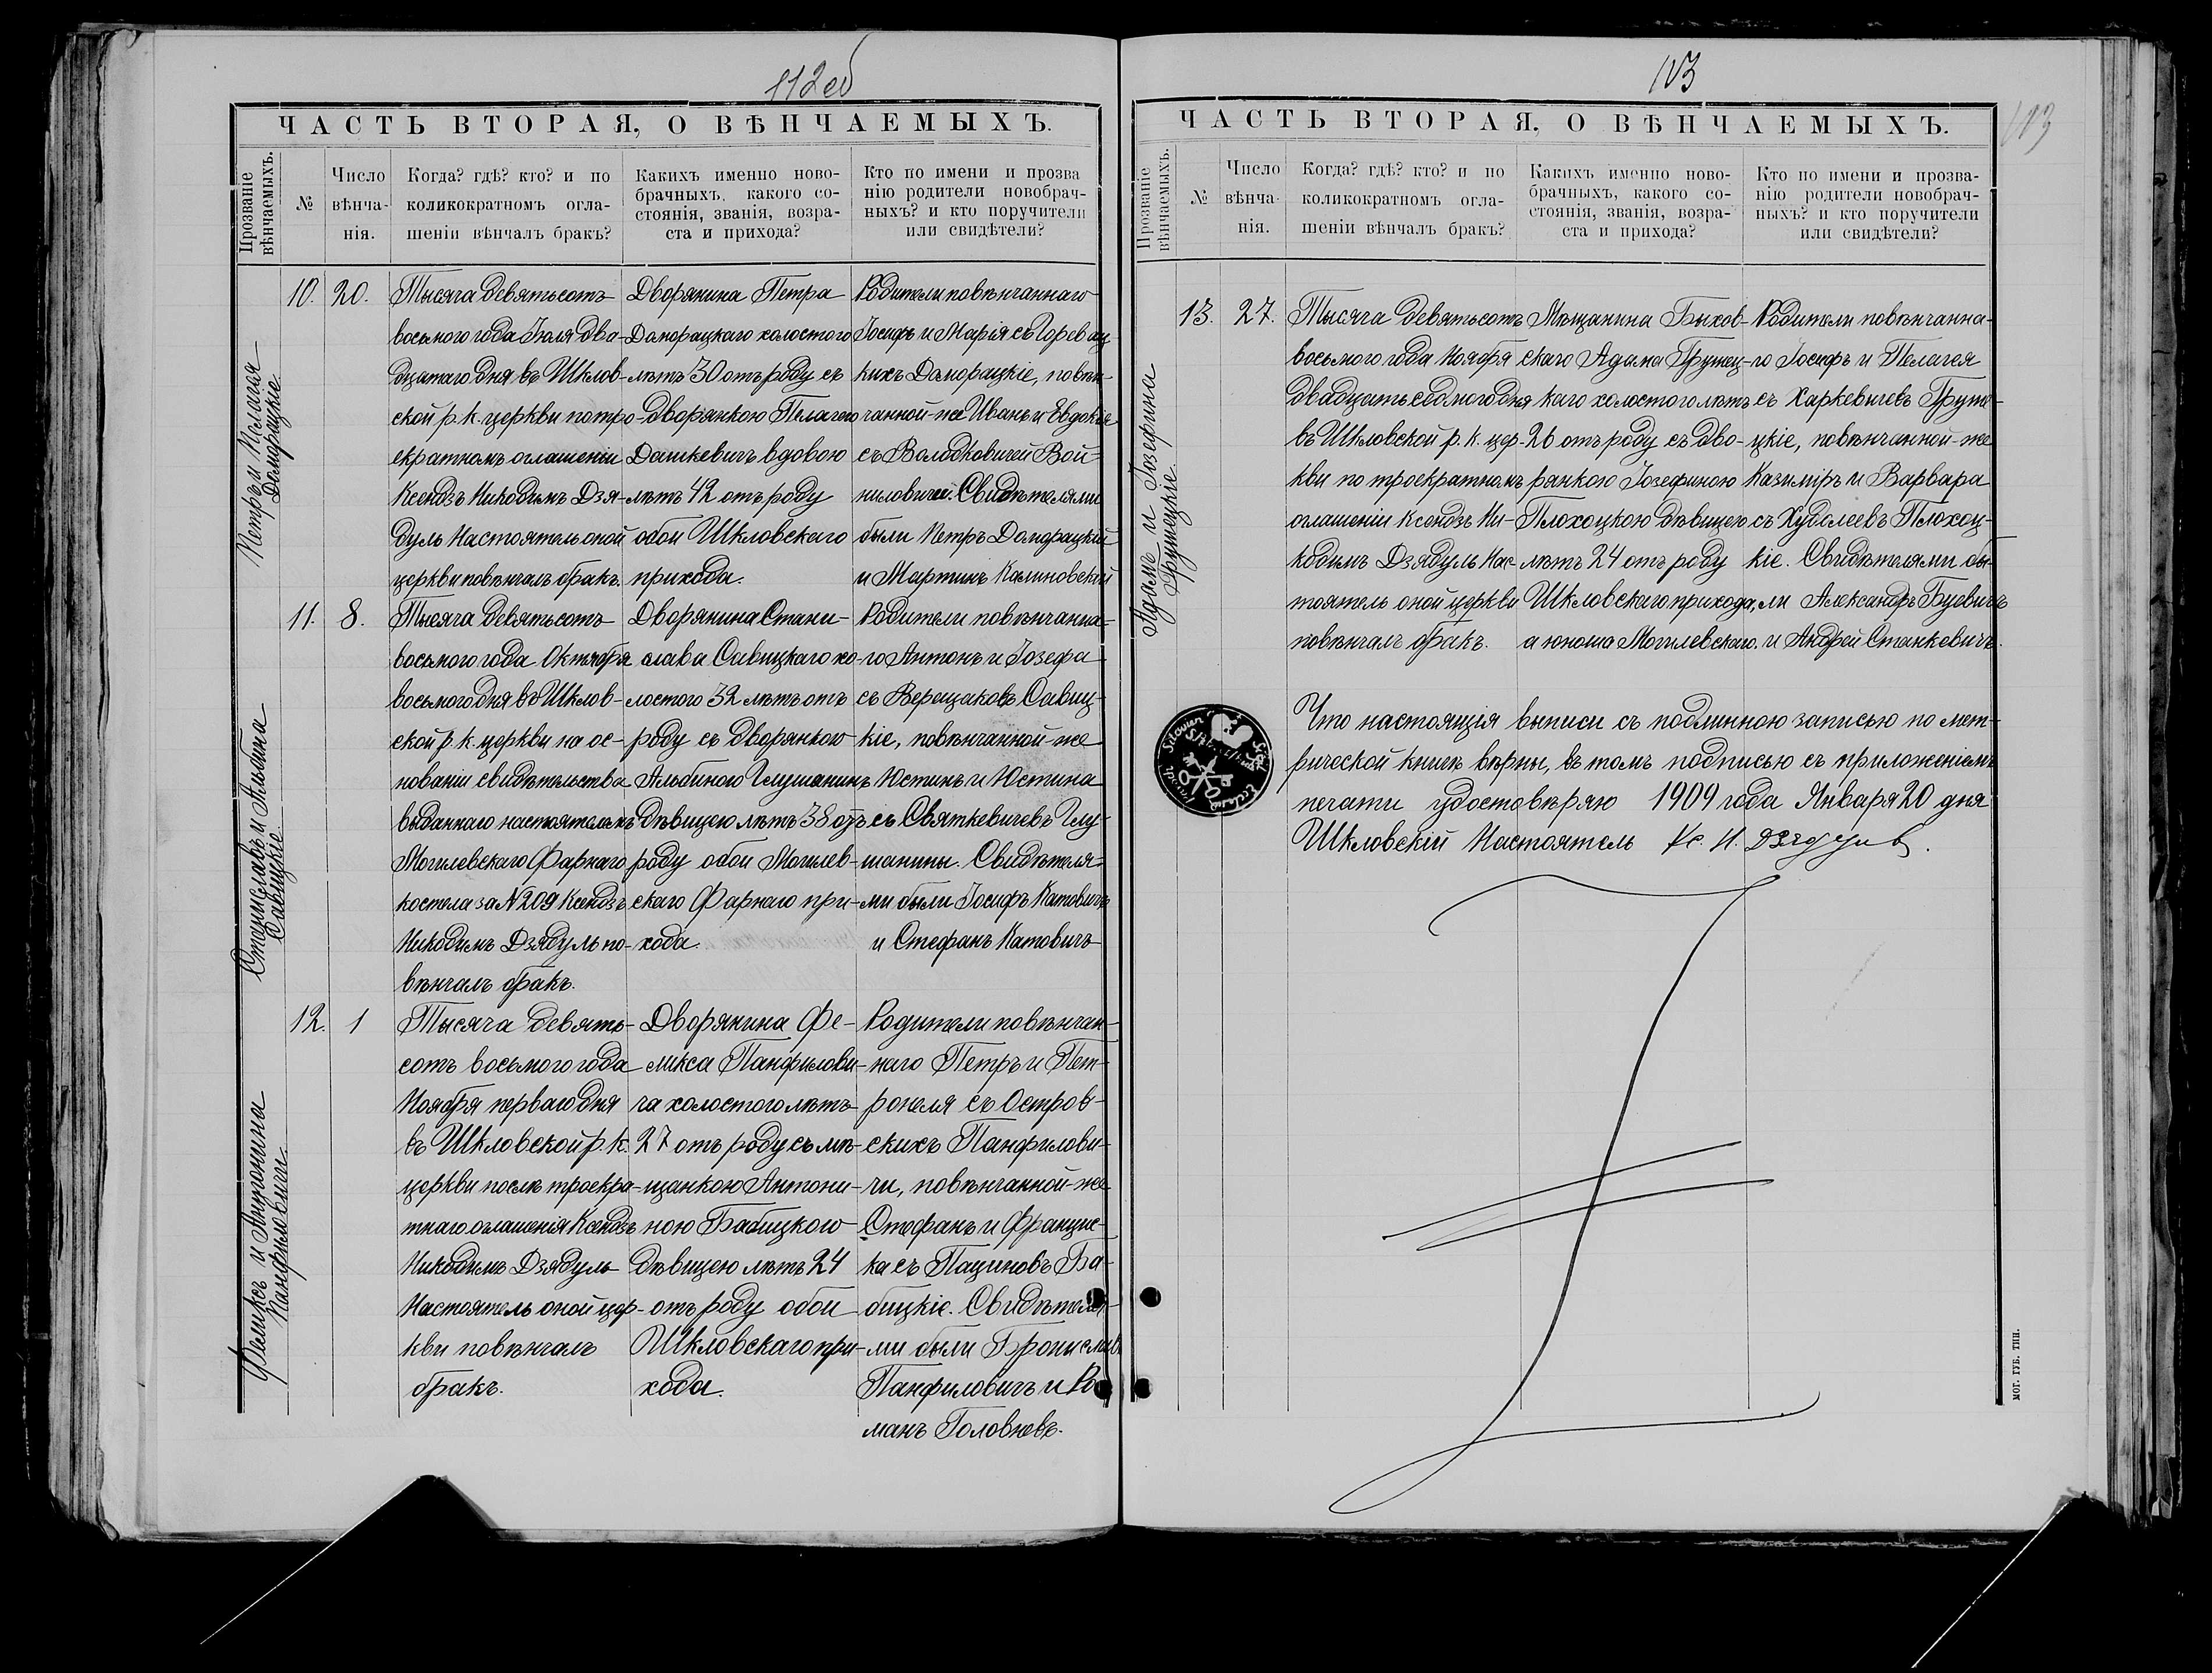 112 об
ЧАСТЬ ВТОРАЯ, О ВѢНЧАЕМЫХЪ.
Прозваніе вѣнчаемыхъ.
№
Число вѣнча-
нія.
Когда? гдѣ? кто? и по
коликократномъ огла-
шеніи вѣнчалъ бракъ?
Какихъ именно ново-
брачныхъ, какого со-
стоянія, званія, возра-
ста и прихода?
Кто по имени и прозва
нію родители новобрач-
ныхъ? и кто поручители
или свидѣтели?
Петръ и Пелагея
Доморацкіе
10.
20.
Тысяча девятьсотъ
восьмого года Іюля два-
дцатаго дня въ Шклов-
ской р. к. церкви по тро-
екратномъ оглашеніи
Ксендзъ Никодимъ Дзя-
дуль Настоятель оной
церкви повѣнчалъ бракъ.
Дворянина Петра
Доморацкаго холостого
лѣтъ 30 отъ роду съ
дворянкою Пелагею
Дашкевичъ вдовою
лѣтъ 42 отъ роду
обои Шкловскаго
прихода.
Родители повѣнчаннаго
Іосифъ и Марія съ
кихъ Доморацкіе, повѣн-
чанной-же Иванъ и Евдокія
съ Володковичей Вой-
ниловичи. Свидѣтелями
были Петръ Доморацкій
и Мартинъ Калиновскій
Станиславъ и Альбина
Савицкіе
11.
8.
Тысяча девятьсотъ
восьмого года Октября
восьмого дня въ Шклов-
ской р. к. церкви на ос-
нованіи свидѣтельства
выданнаго настоятелемъ
Могилевскаго Фарнаго
костела за № 209 Ксендзъ
Никодимъ Дзядуль по-
вѣнчалъ бракъ.
Дворянина Стани-
слава Савицкаго хо-
лостого 32 лѣтъ отъ
роду съ дворянкою
Альбиною Глушанинъ
дѣвицею лѣтъ 38 отъ
роду обои Могилев-
скаго Фарнаго при-
хода.
Родители повѣнчанна-
го Антонъ и Іозефа
съ Верещаковъ Савиц-
кіе, повѣнчанной-же
Юстинъ и Юстина
съ Святкевичевъ Глу-
шанины. Свидѣтеля-
ми были Іосифъ Катовичъ
и Стефанъ Катовичъ
Феликсъ и Антонина
Панфиловичи.
12.
1
Тысяча девять-
сотъ восьмого года
Ноября перваго дня
въ Шкловской р. к.
церкви послѣ троекра-
тнаго оглашенія Ксендзъ
Никодимъ Дзядуль
Настоятель оной цер-
кви повѣнчалъ
бракъ.
Дворянина Фе-
ликса Панфилови-
ча холостого лѣтъ
27 отъ роду съ мѣ-
щанкою Антони-
ною Бабицкою
дѣвицею лѣтъ 24
отъ роду обои
Шкловскаго при-
хода.
Родители повѣнчан-
наго Петръ и Пет-
ронеля съ Остров-
скихъ Панфилови-
чи, повѣнчанной-же
Стефанъ и Францис-
ка съ Пациновъ Ба-
бицкіе. Свидѣтеля-
ми были Брониславъ
Панфиловичъ и Ро-
манъ Головневъ.
113
113
ЧАСТЬ ВТОРАЯ, О ВѢНЧАЕМЫХЪ.
Прозваніе вѣнчаемыхъ.
№
Число
вѣнча-
нія.
Когда? гдѣ? кто? и по
коликократномъ огла-
шеніи вѣнчалъ бракъ?
Какихъ именно ново-
брачныхъ, какого со-
стоянія, званія, возра-
ста и прихода?
Кто по имени и прозва-
нію родители новобрач-
ныхъ? и кто поручители
или свидѣтели?
Адамъ и Іозефина
Грутецкіе
13.
27.
Тысяча девятьсотъ
восьмого года Ноября
двадцать седмого дня
въ Шкловской р. к. цер-
кви по троекратномъ
оглашеніи Ксендзъ Ни-
кодимъ Дзядуль Нас-
тоятель оной церкви
повѣнчалъ бракъ.
Мѣщанина Быхов-
скаго Адама Грутец-
каго холостого лѣтъ
26 отъ роду съ дво-
рянкою Іозефиною
Плохоцкою дѣвицею
лѣтъ 24 отъ роду
Шкловскаго прихода,
а юноша Могилевскаго.
Родители повѣнчанна-
го Іосифъ и Пелагея
съ Харкевичевъ Груте-
цкіе, повѣнчанной-же
Казиміръ и Варвара
съ Хубелеевъ Плохоц-
кіе. Свидѣтелями бы-
ли Александръ Буевичъ
и Андрей Станкевичъ.
Что настоящія выписи съ подлинною записью по мет-
рической книгѣ вѣрны, въ томъ подписью съ приложеніемъ
печати удостовѣряю 1909 года Января 20 дня
Шкловскій Настоятель Кс. Н. Дзядуль.
МОГ. ГУБ. ТИП.